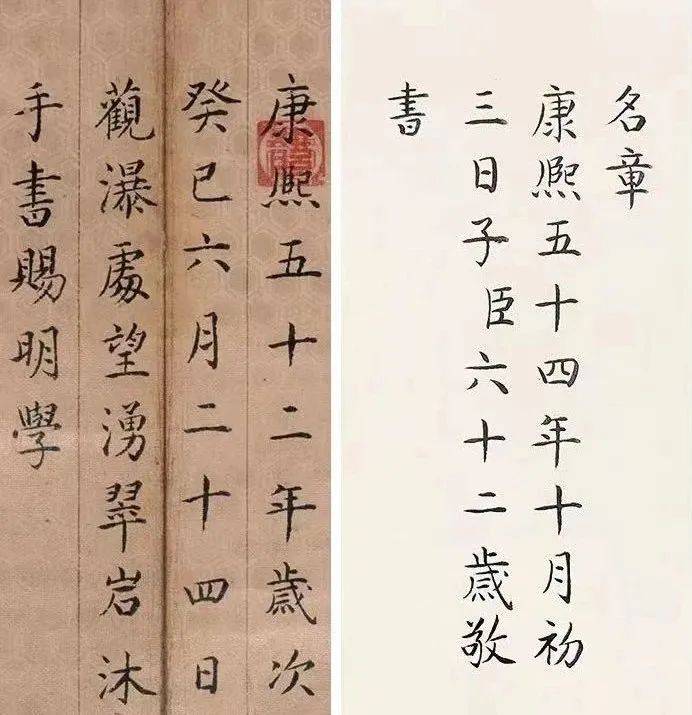 康熙五十二年歲次
癸巳六月二十四日
觀瀑處望湧翠岩沐
手書賜明學
名章
康熙五十四年十月初
三日子臣六十二歲敬
書